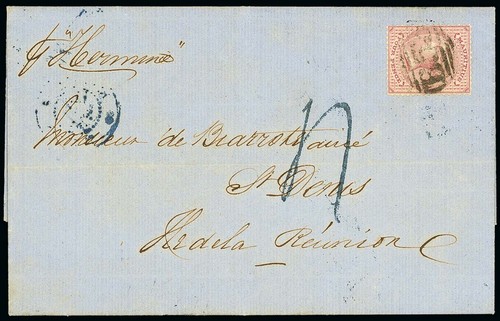 p "Hermine"
Monsieur de Biarrots ainé
n
St Denis
Ile de la Réunion